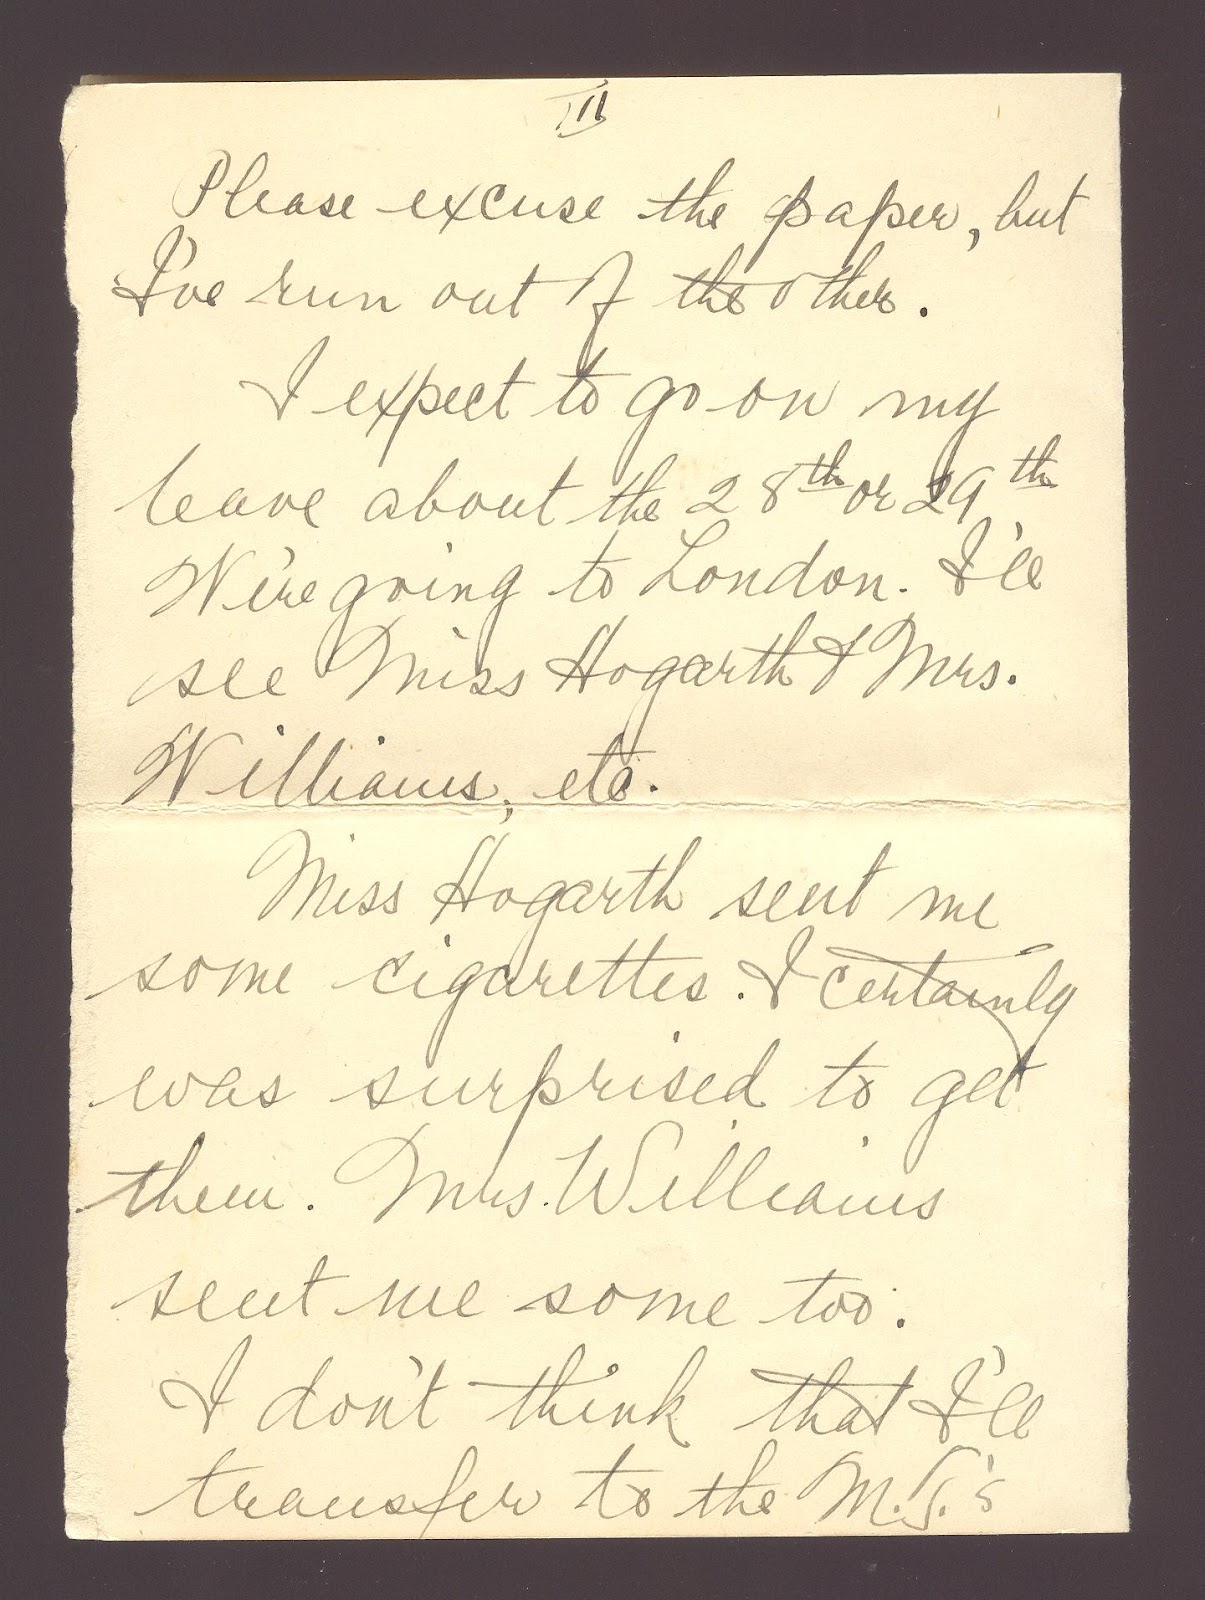 III
Please excuse the paper, but
I've run out of the other.
I expect to go on my
leave about the 28th or 29th
We're going to London. I'll
see Miss Hogarth & Mrs.
Williams, etc.
Miss Hogarth sent me
some cigarettes. I certainly
was surprised to get
them. Mrs. Williams
sent me some too.
I don't think that I'll
transfer to the M.T.'s